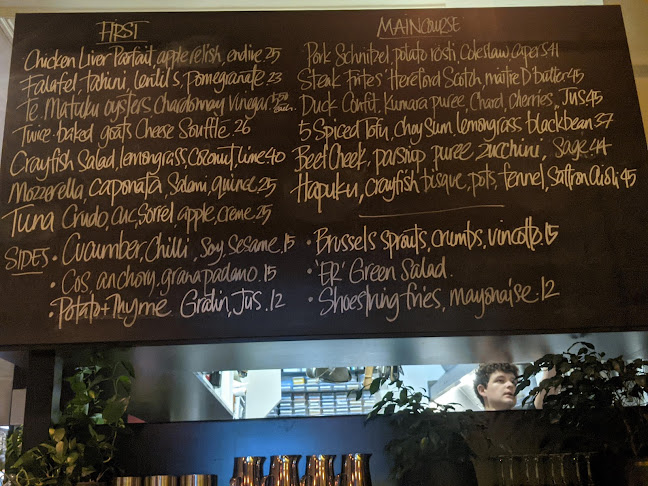 FIRST
Chicken Liver Parfait, apple relish, endive 25
Falafel, tahini, lentils, pomegranate 23
Te Matuku oysters Chardonnay Vinegar
Twice-baked goats Cheese Soufflé 26
Crayfish Salad lemongrass, Coconut, lime 40
Mozzerella caponata, Salami, quince 25
Tuna Crudo, cuc, Sorrel, apple, creme 25
MAINCOURSE
Pork Schnitzel, potato rosti, Coleslaw capers 41
Steak Frites Hereford Scotch, maitre D' butter 45
Duck Confit, Kumara puree, Chard, cherries, Jus 45
5 Spiced Tofu, Choy Sum lemongrass blackbean 37
Beef Cheek, parsnip puree, zucchini, Sage 44
Hapuku, crayfish bisque, pots, fennel, Saffron aioli 45
SIDES
• Cucumber, Chilli, Soy, Sesame 15
• Cos anchovy, grana padano 15
• Potato + Thyme Gratin, Jus 12
• Brussels sprouts, crumbs, vincotto 15
• Green Salad.
• Shoestring fries, mayonaise 12